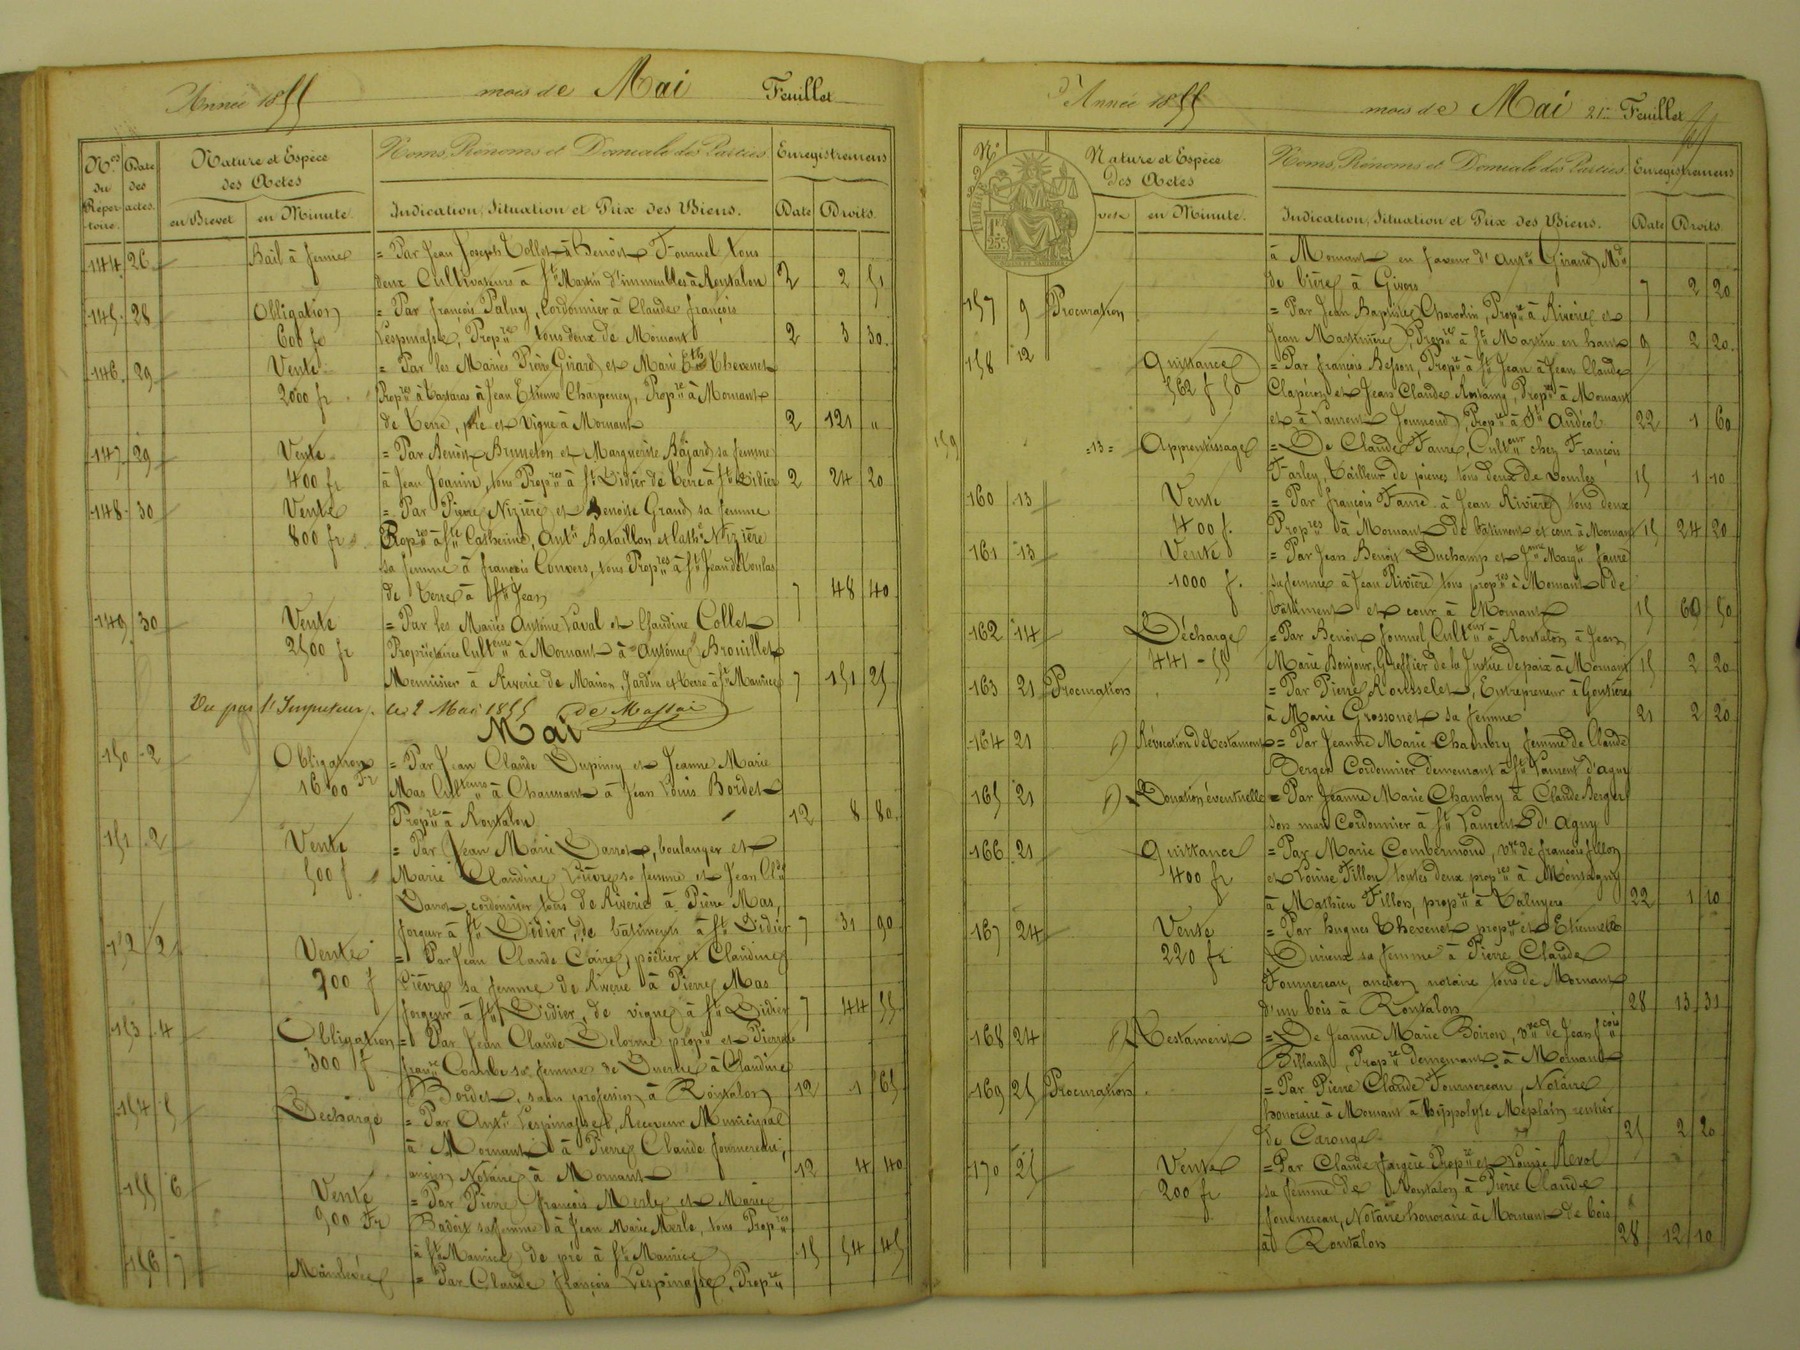 Année 1855 mois de Mai Feuillet
Nos du Répertoire. Date des actes. Nature et Espèce des Actes Noms, Prénoms et Domicile des Parties Enregistremens
en Brevet en Minute. Indication, Situation et Prix des Biens. Date Droits.
144 26 Bail à ferme = Par Jean Joseph Collet à Benoît Fournel tous
deux Cultivateurs à St Martin d'immeubles à Rontalon 2 2 51
145 28 Obligation = Par françois Paluy, Cordonnier à Claude françois
600 fr Lespinasse, Propre tous deux de Mornant 2 3 30
146 29 Vente = Par les Mariés Pierre Girard et Marie Thevenet
2000 fr Propres à Tartaras à Jean Etienne Charpeney, Propre à Mornant
de Terre, pré et Vigne à Mornant 2 121 "
147 29 Vente = Par Benoît Bruneton et Marguerite Bajard sa femme
400 fr à Jean Jeannin, tous Propres à St Didier de Terre à St Didier 2 24 20
148 30 Vente = Par Pierre Nizière et Benoite Grand sa femme
800 fr Propres à Ste Catherine, Antne Bataillon et Cathe Nizière
sa femme à françois Convers, tous Propres à St Jean de Toulas
de Terre à St Jean 7 48 40
149 30 Vente = Par les Mariés Antoine Laval et Claudine Collet
2500 fr Propriétaires Culteurs à Mornant à Antoine Brouillet
Menuisier à Riverie de Maison, Jardin et terre à St Maurice 7 151 25
Vu par l'Inspecteur. le 2 Mai 1855 de Massai
Mai
150 2 Obligation = Par Jean Claude Dupiney et Jeanne Marie
1600 Fr Mas Culteurs à Chaussant à Jean Louis Bordet
Propre à Rontalon 12 8 80
151 2 Vente = Par Jean Marie Darrot, boulanger et
500 f Marie Claudine Pièvre sa femme et Jean Clde
Darrot, cordonnier tous de Riverie à Pierre Mas,
forgeur à St Didier, de bâtimens à St Didier 7 31 90
152 2 Vente = Par Jean Claude Caire, poëlier et Claudine
700 f Pièvre sa femme de Riverie à Pierre Mas
forgeur à St Didier, de vigne à St Didier 7 44 55
153 4 Obligation = Par Jean Claude Delorme propre et Pierrette
300 f franse Combe sa femme de Duerne à Claudine
Bordet, sans profession à Rontalon 12 1 65
154 5 Décharge = Par Antne Lespinasse, Receveur Municipal
à Mornant à Pierre Claude Fournereau,
ancien Notaire à Mornant 12 4 40
155 6 Vente = Par Pierre François Merle et Marie
900 Fr Badoit sa femme à Jean Marie Merle, tous Propres
à St Maurice de pré à St Maurice 15 54 45
156 7 Mainlevée = Par Claude françois Lespinasse, Propre
Année 1855 mois de Mai 21me Feuillet
No Nature et Espèce des Actes Noms, Prénoms et Domicile des Parties Enregistremens
en Minute. Indication, Situation et Prix des Biens. Date Droits.
TIMBRE
1 F 25c
à Mornant en faveur d'Antne Girand, Md
de bière à Givors 7 2 20
157 9 Procuration = Par Jean Baptiste Charvolin, Propre à Riverie et
Jean Martinière, Propre à St Martin en haut 9 2 20
158 12 Quittance = Par françois Besson, Propre à St Jean à Jean Claude
562 f 50 Claperon et Jean Claude Rostaing, Propres à Mornant
et à Laurent Journoud, Propre à St Andéol 22 1 60
159 13 Apprentissage = De Claude Favre, Culteur chez François
Farley, Tailleur de pierres tous deux de Sourles 15 1 10
160 13 Vente = Par françois Favre à Jean Rivière tous deux
400 f. Propres à Mornant de bâtiment et cour à Mornant 15 24 20
161 13 Vente = Par Jean Benoît Duchamp et Jnne Margte favre
1000 f. sa femme à Jean Rivière tous propres à Mornant de
bâtiment et cour à Mornant 15 60 50
162 14 Décharge = Par Benoît fournel Culteur à Rontalon à Jean
441-55 Marie Bonjour, Greffier de la Justice de paix à Mornant 15 2 20
163 21 Procuration = Par Pierre Rousselet, Entrepreneur à Gonfière
à Marie Grossonet sa femme 21 2 20
164 21 Révocation de Testament = Par Jeanne Marie Chambry femme de Claude
Berger Cordonnier demeurant à St Laurent d'agny
165 21 Donation éventuelle = Par Jeanne Marie Chambry à Claude Berger
son mari Cordonnier à St Laurent d'Agny
166 21 Quittance = Par Marie Combermond, Vve de françois fillon
400 fr et Louise Fillon toutes deux propres à Montagny
à Mathieu Fillon, propre à Taluyers 22 1 10
167 24 Vente = Par hugues Thevenet propre et Etiennette
220 fr Durieux sa femme à Pierre Claude
Fournereau, ancien notaire tous de Mornant
d'un bois à Rontalon 28 13 31
168 24 Testament = De Jeanne Marie Boiron, Vve de Jean fcois
Billand, Propre demeurant à Mornant
169 25 Procuration = Par Pierre Claude Fournereau, Notaire
honoraire à Mornant à hyppolyte Méplain rentier
de Carouge 25 2 20
170 25 Vente = Par Claude fargère Propre et Louise Revol
200 fr sa femme de Rontalon à Pierre Claude
fournereau, Notaire honoraire à Mornant de bois
à Rontalon 28 12 10